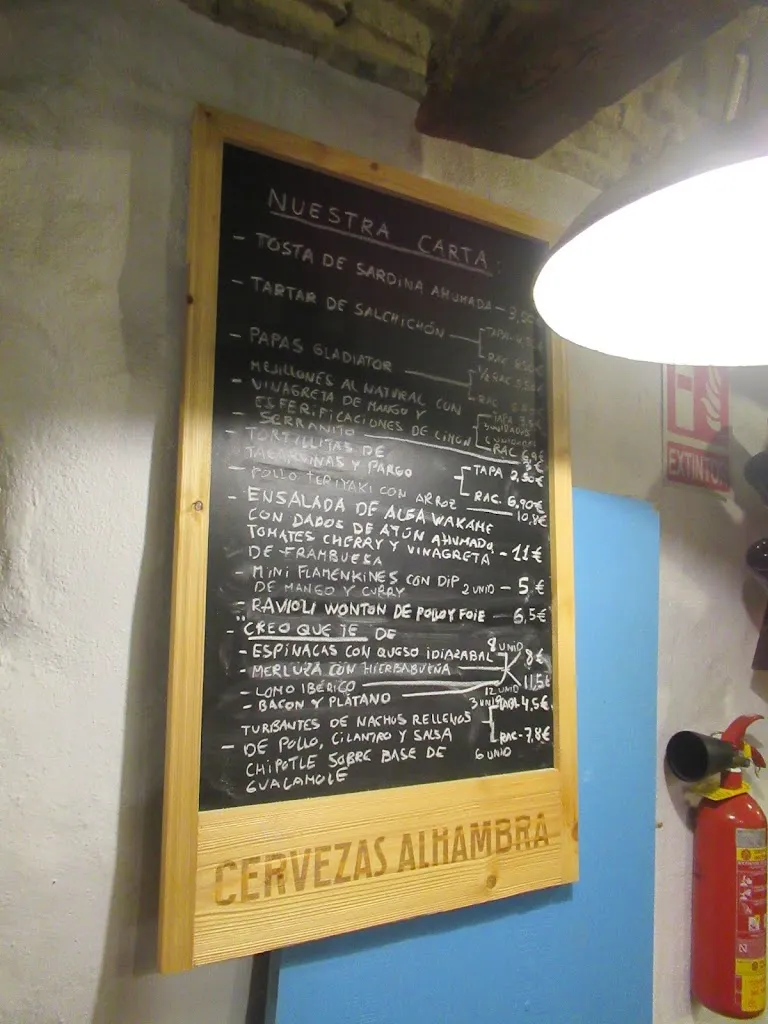 NUESTRA CARTA:
- TOSTA DE SARDINA AHUMADA - 3,5
- TARTAR DE SALCHICHÓN TAPA
RAC
- PAPAS GLADIATOR ½ RAC
RAC
- MEJILLONES AL NATURAL CON
VINAGRETA DE MANGO Y
ESFERIFICACIONES DE LIMON TAPA
RAC 6,9€
- SERRANITO 3€
- TORTILLITAS DE
Y PARGO TAPA 2,50€
RAC. 6,90€
- POLLO TERIYAKI CON ARROZ 10,8€
- ENSALADA DE ALGA WAKAME
CON DADOS DE ATÚN AHUMADO
TOMATES CHERRY Y VINAGRETA - 11€
DE FRAMBUESA
- MINI FLAMENKINES CON DIP 2 UNID - 5 €
DE MANGO Y CURRY
- RAVIOLI WONTON DE POLLO Y FOIE - 6,5€
- "CREO QUE TE DE
- ESPINACAS CON QUESO IDIAZABAL 8 UNID 8€
- MERLUZA CON HIERBABUENA
- LOMO IBÉRICO 12 UNID 11,5€
- BACON Y PLÁTANO
TURBANTES DE NACHOS RELLENOS 3 UNID TAPA 4,5€
- DE POLLO, CILANTRO Y SALSA RAC - 7,8€
CHIPOTLE SOBRE BASE DE 6 UNID
GUACAMOLE
CERVEZAS ALHAMBRA
EXTINTOR